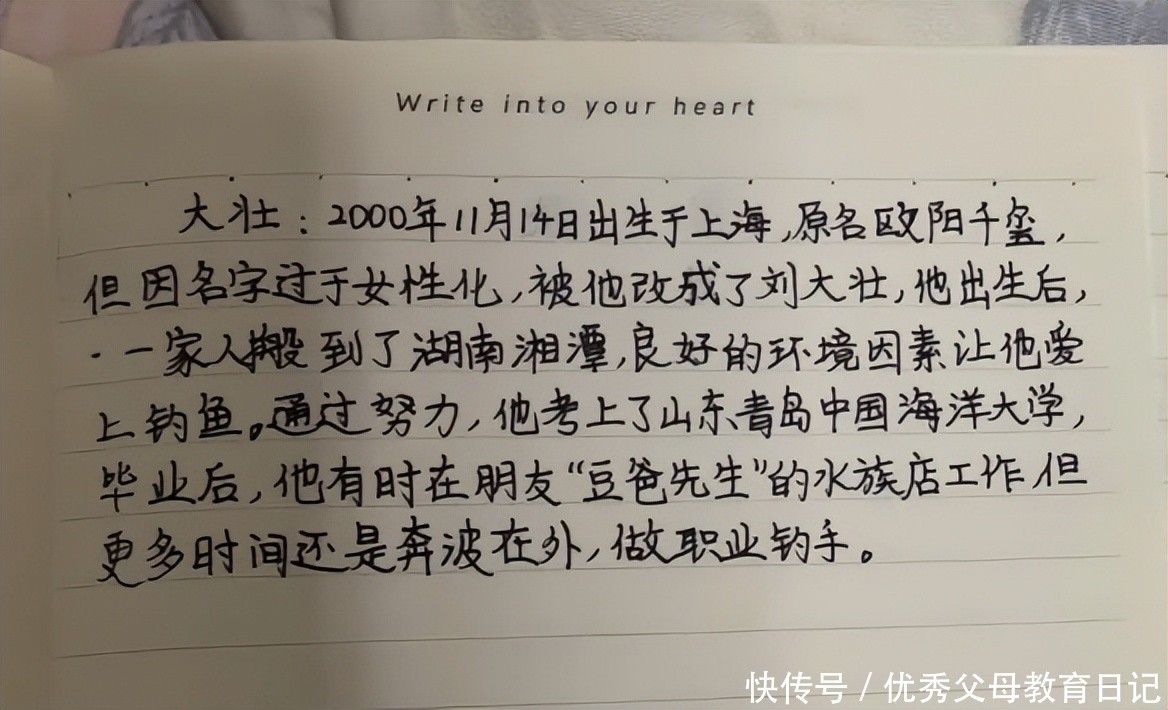 Write into your heart
大壮：2000年11月14日出生于上海,原名欧阳千玺,
但因名字过于女性化,被他改成了刘大壮,他出生后,
·一家人搬到了湖南湘潭,良好的环境因素让他爱
上钓鱼。通过努力,他考上了山东青岛中国海洋大学,
毕业后,他有时在朋友“豆爸先生”的水族店工作,但
更多时间还是奔波在外,做职业钓手。
快传号/优秀父母教育日记